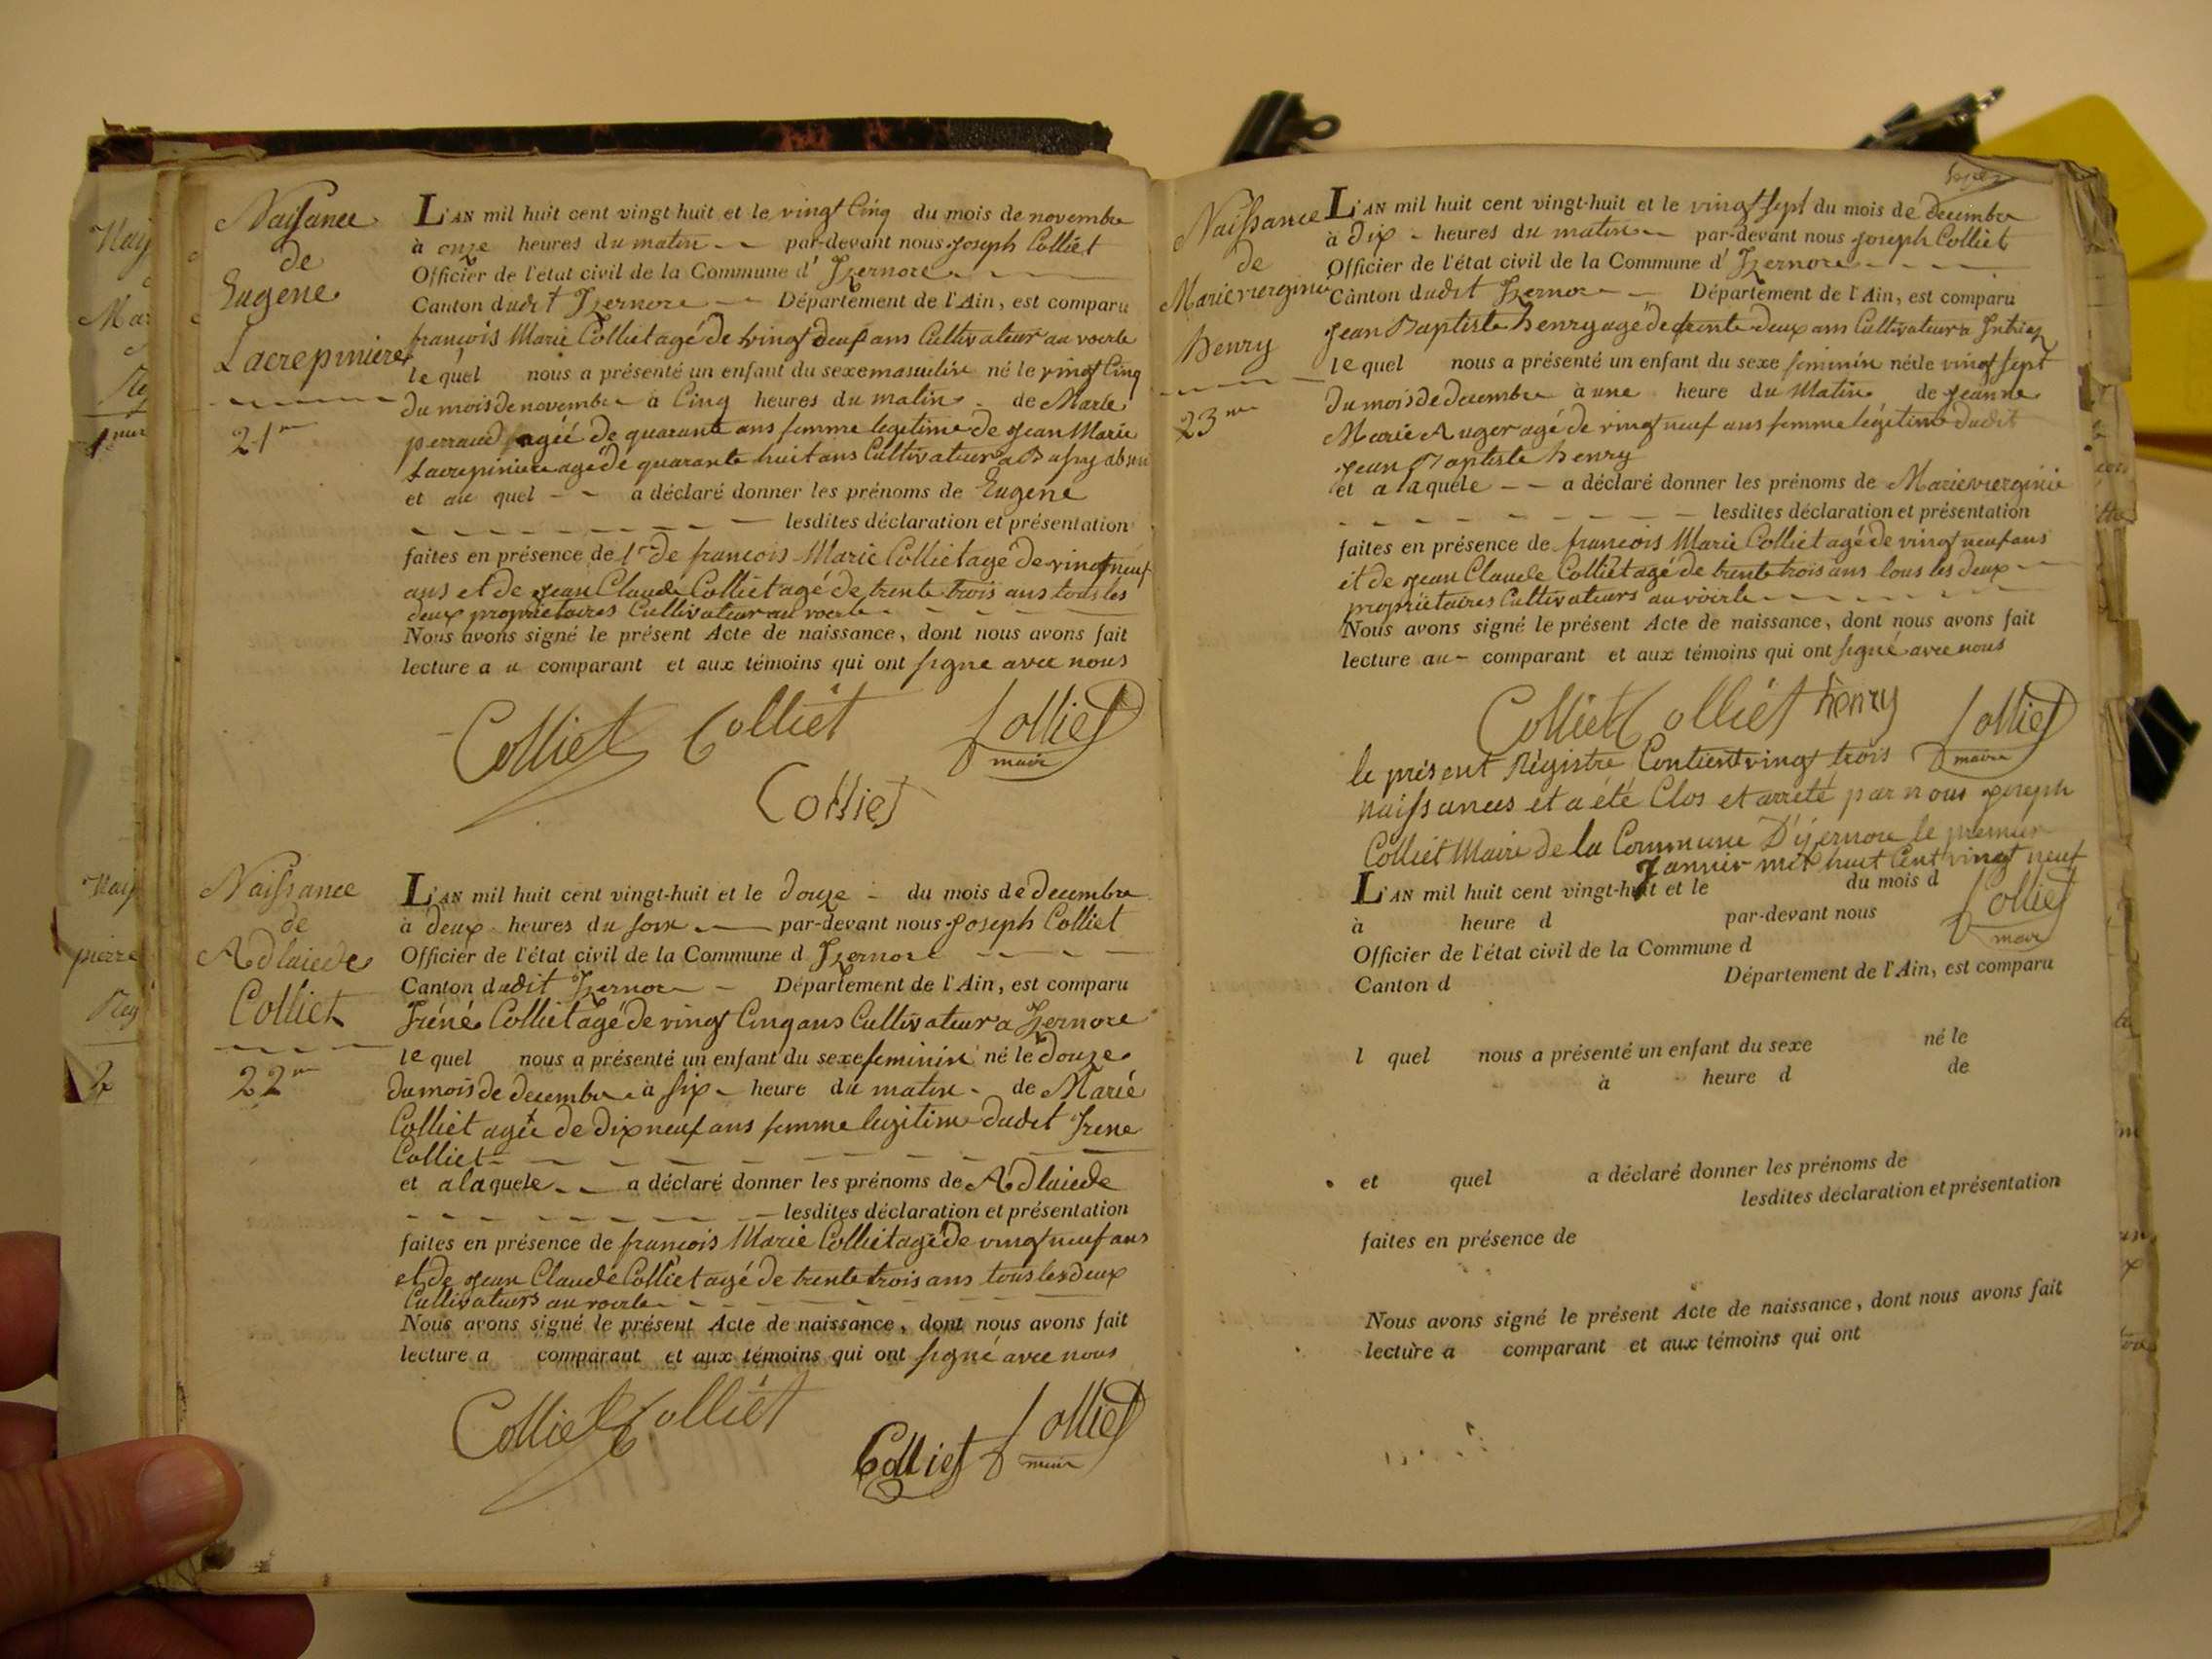 Naissance
de
Eugene
Lacrepiniere
21me
L'AN mil huit cent vingt-huit et le vingt Cinq du mois de novembre
à onze heures du matin par-devant nous Joseph Colliet
Officier de l'état civil de la Commune d'Izernore
Canton dudit Izernore Département de l'Ain, est comparu
françois Marie Colliet agé de vingt neuf ans Cultivateur au voerle
le quel nous a présenté un enfant du sexe masculin né le vingt Cinq
du mois de novembre à Cinq heures du matin de Marie
perraud agée de quarante ans femme legitime de Jean Marie
Lacrepiniere agé de quarante huit ans Cultivateur a
et au quel a déclaré donner les prénoms de Eugene
lesdites déclaration et présentation
faites en présence de 1er de francois Marie Colliet agé de vingt neuf
ans et de Jean Claude Colliet agé de trente trois ans tous les
deux propriétaires Cultivateur au voerle
Nous avons signé le présent Acte de naissance, dont nous avons fait
lecture a u comparant et aux témoins qui ont signé avec nous
Colliet Colliet Colliet
maire
Colliet
Naissance
de
Adlaiede
Colliet
22me
L'AN mil huit cent vingt-huit et le douze du mois de decembre
à deux heures du soir par-devant nous Joseph Colliet
Officier de l'état civil de la Commune d Izernore
Canton dudit Izernore Département de l'Ain, est comparu
Iréné Colliet agé de vingt Cinq ans Cultivateur a Izernore
le quel nous a présenté un enfant du sexe feminin né le douze
du mois de decembre à six heure du matin de Marie
Colliet agée de dix neuf ans femme legitime dudit Irene
Colliet
et a laquele a déclaré donner les prénoms de Adlaiede
lesdites déclaration et présentation
faites en présence de francois Marie Colliet agé de vingt neuf ans
et de Jean Claude Colliet agé de trente trois ans tous les deux
Cultivateurs au voerle
Nous avons signé le présent Acte de naissance, dont nous avons fait
lecture a comparant et aux témoins qui ont signé avec nous
Colliet Colliet Colliet Colliet
maire
Naissance
de
Marie vierginie
henry
23me
L'AN mil huit cent vingt-huit et le vingt sept du mois de decembre
à dix heures du matin par-devant nous Joseph Colliet
Officier de l'état civil de la Commune d'Izernore
Canton dudit Izernore Département de l'Ain, est comparu
Jean Baptiste henry agé de trente deux ans Cultivateur a Intriaz
le quel nous a présenté un enfant du sexe feminin né de vingt sept
du mois de decembre à une heure du Matin de Jeanne
Marie Auger agé de vingt neuf ans femme légitime dudit
Jean Baptiste henry
et a laquele a déclaré donner les prénoms de Marie vierginie
lesdites déclaration et présentation
faites en présence de francois Marie Colliet agé de vingt neuf ans
et de Jean Claude Colliet agé de trente trois ans tous les deux
propriétaires Cultivateurs au voerle
Nous avons signé le présent Acte de naissance, dont nous avons fait
lecture au comparant et aux témoins qui ont signé avec nous
Colliet Colliet henry Colliet
maire
le présent Registre Contient vingt trois
naissances et a été Clos et arreté par nous Joseph
Colliet Maire de la Commune D'izernore le premier
Janvier mil huit Cent vingt neuf
Colliet
maire
L'AN mil huit cent vingt-huit et le du mois d
à heure d par-devant nous
Officier de l'état civil de la Commune d
Canton d Département de l'Ain, est comparu
l quel nous a présenté un enfant du sexe né le
à heure d de
et quel a déclaré donner les prénoms de
lesdites déclaration et présentation
faites en présence de
Nous avons signé le présent Acte de naissance, dont nous avons fait
lecture a comparant et aux témoins qui ont